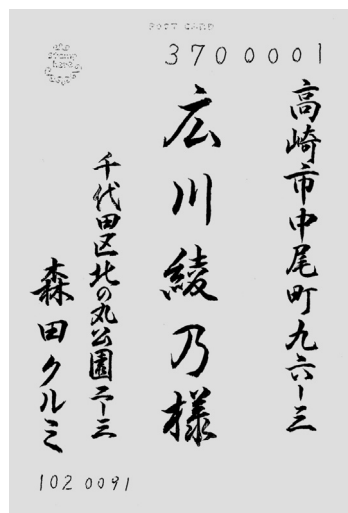 POST CARD
stamp
here
3700001
高崎市中尾町九六ー三
広川綾乃様
千代田区北の丸公園二ー三
森田クルミ
102 0091